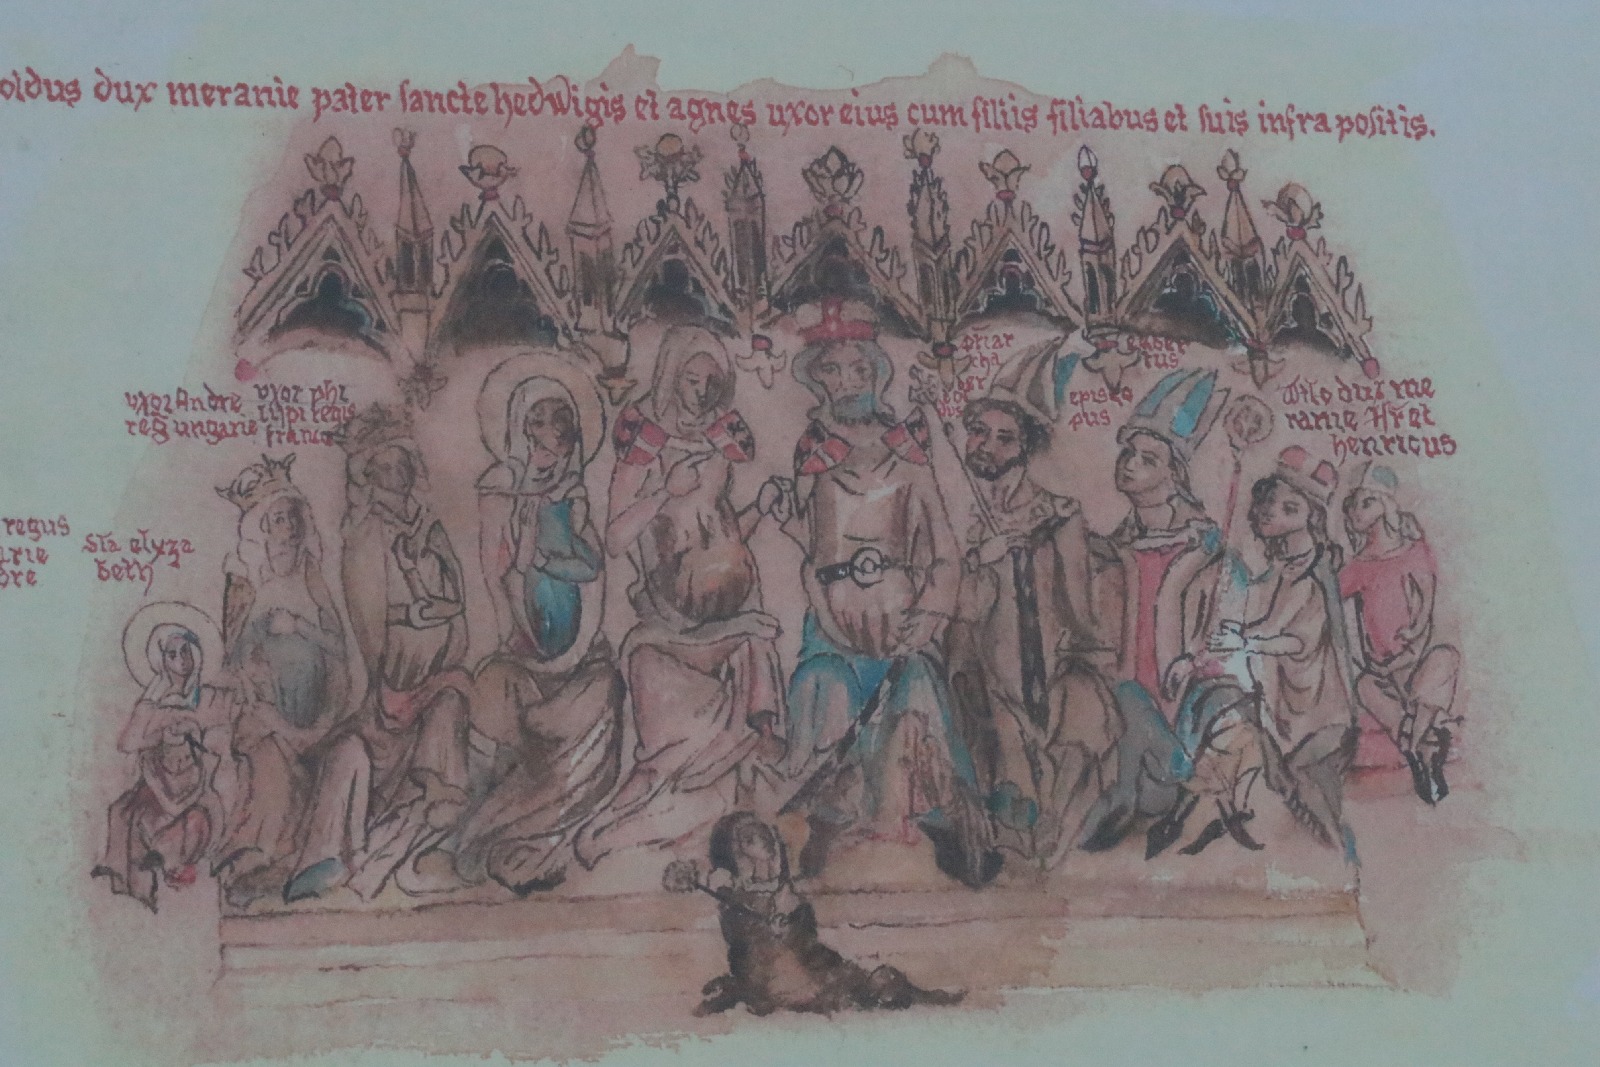 oldus dux meranie pater sancte hedwigis et agnes uxor eius cum filiis filiabus et suis infra positis.
uxor Andre
reg̅ ungarie
uxor phi
lippi regis
francie
regus
arie
sta elyza
beth
p̅riar
cha
ber
tol
dus
episco
pus
egber
tus
Otto dux me
ranie
henricus